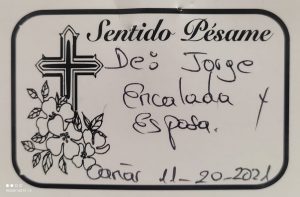 Sentido Pésame
De: Jorge
Encalada y
Esposa.
Cañar 11-20-2021